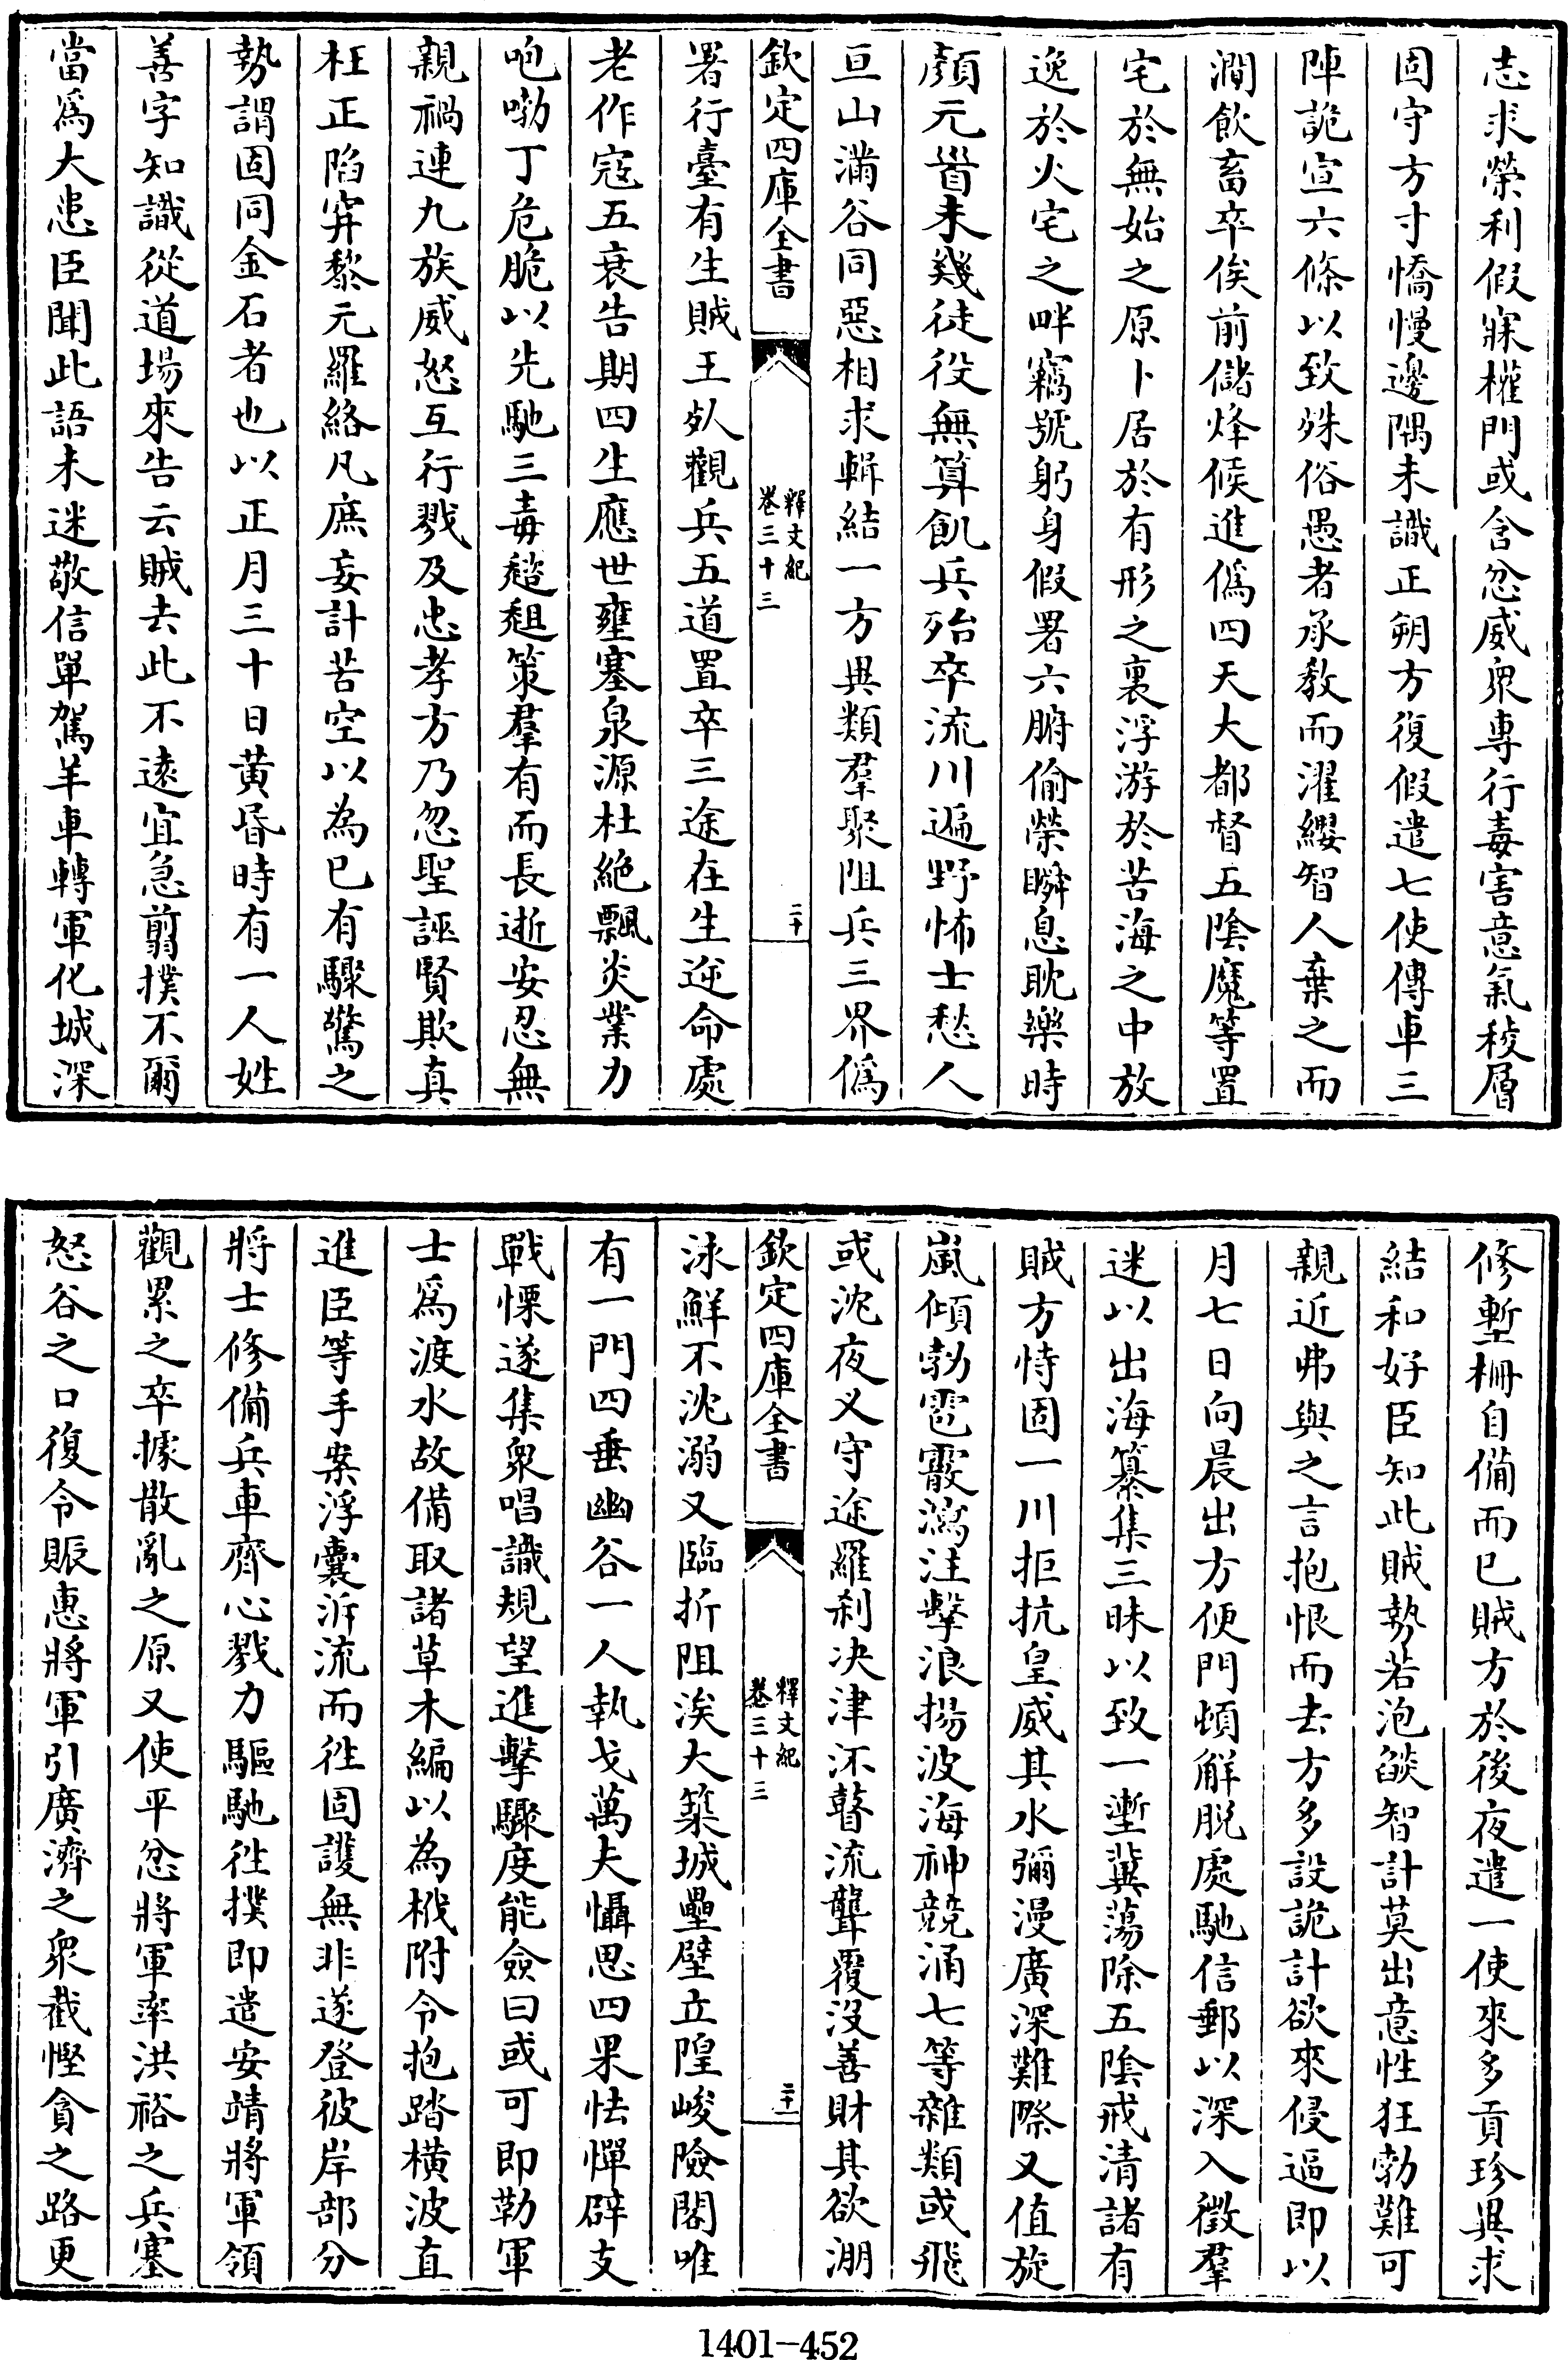 志求榮利假寐權門或含忿威衆專行毒害意氣稜層
固守方寸憍慢邊隅未識正朔方復假遣七使傳車三
陣詭宣六條以致殊俗愚者承教而濯纓智人棄之而
澗飲畜卒俟前儲烽候進偽四天大都督五陰魔等置
宅於無始之原卜居於有形之裏浮游於苦海之中放
逸於火宅之畔竊號躬身假署六腑偷榮瞬息耽樂時
顏元首未幾徒役無算飢兵殆卒流川遍野怖士愁人
亘山滿谷同惡相求輯結一方異類羣聚阻兵三界偽
欽定四庫全書
釋文紀
卷三十三
二十
署行臺有生賊王死觀兵五道置卒三途在生逆命處
老作寇五衰告期四生應世壅塞泉源杜絶飄炎業力
咆嘞丁危脆以先馳三毒趦趄策羣有而長逝安忍無
親禍連九族威怒互行戮及忠孝方乃忽聖誣賢欺真
枉正陷穽黎元羅絡凡庶妄計苦空以為已有驟驚之
勢謂固同金石者也以正月三十日黄昏時有一人姓
善字知識從道場來告云賊去此不遠宜急翦撲不爾
當為大患臣聞此語未迷敬信單駕羊車轉軍化城深
修塹柵自備而已賊方於後夜遣一使來多貢珍異求
結和好臣知此賊勢若泡燄智計莫出意性狂勃難可
親近弗與之言抱恨而去方多設詭計欲來侵逼即以
月七日向晨出方便門頓解脱處馳信郵以深入徵羣
迷以出海纂集三昧以致一壍冀蕩除五陰戒清諸有
賊方恃固一川拒抗皇威其水彌漫廣深難際又值旋
嵐傾勃雹霰瀉注擊浪揚波海神競涌七等雜類或飛
或沈夜叉守途羅刹决津沶瞽流聾覆没善財其欲淜
欽定四庫全書
釋文紀
卷三十三
二十一
泳鮮不沈溺又臨折阻涘大築城壘壁立隍峻險閣唯
有一門四垂幽谷一人執戈萬夫懾思四果怯憚辟支
戰慄遂集衆唱議規望進擊驟度能僉曰或可即勒軍
士為渡水故備取諸草木編以為栰附令抱踏橫波直
進臣等手案浮囊泝流而徃固護無非遂登彼岸部分
將士修備兵車齊心戮力驅馳徃撲即遣安靖將軍領
觀累之卒據散亂之原又使平忿將軍率洪裕之兵塞
怒谷之口復令賑惠將軍引廣濟之衆截慳貪之路更
1401-452